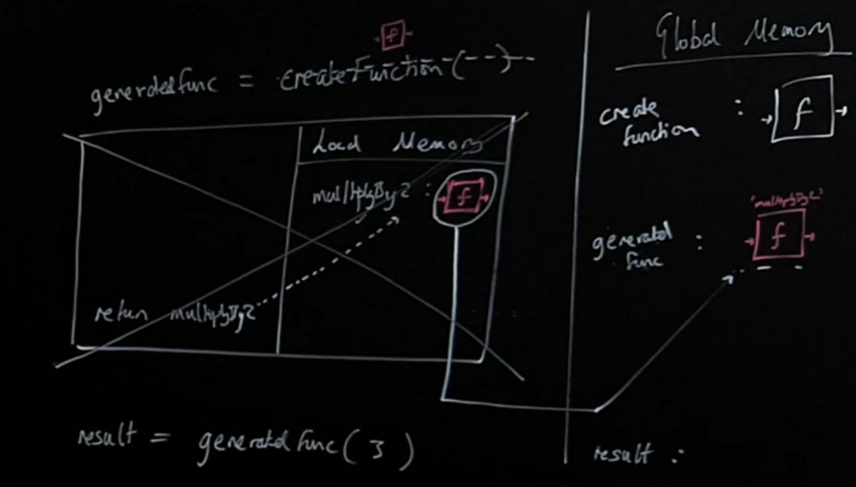 f
generatedfunc = createFunction(--)--
Local Memory
multiplyBy2 : f
return multiplyBy2
result = generatedfunc(3)
Global Memory
create function : f
'multiplyBy2'
generated func : f
result :